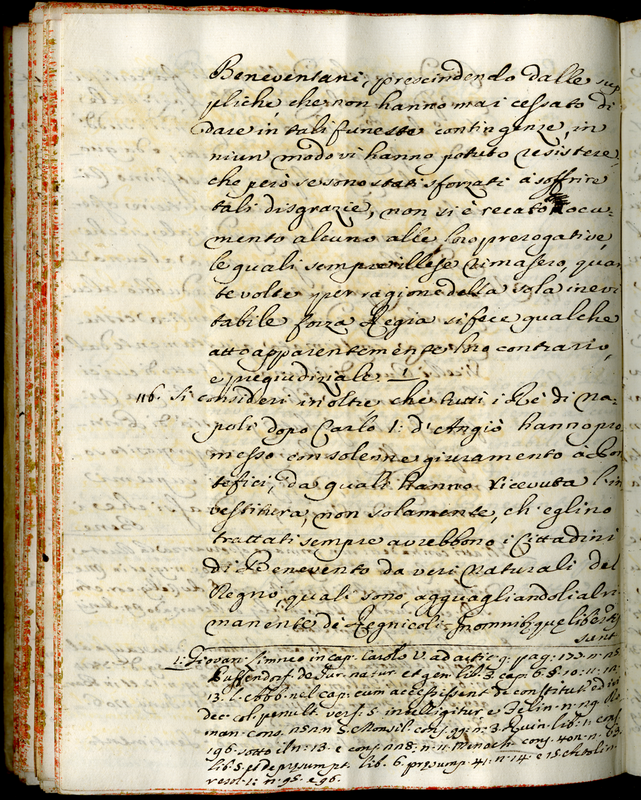 Beneventani, prescindendo dalle sup
pliche che non hanno mai cessato di
dare in tali funeste contingenze, in
niun modo vi hanno potuto resistere
che però se sono stati sforzati a soffrire
tali disgrazie, non si è recato nocu-
mento alcuno alle loro prerogative,
le quali sempre illese rimasero, quan
te volte per ragione della sola inevi
tabile forza Regia si fece qualche
atto apparentemente loro contrario,
e pregiudiziale 1
116. Si consideri inoltre che tutti i Rè di Na-
poli dopo Carlo I: d'Angiò hanno pro
messo con solenne giuramento a Pon
tefici, da quali hanno ricevuta l'in
vestitura, non solamente, ch'eglino
trattati sempre avrebbono i Cittadini
di Benevento da veri Naturali del
Regno, quali sono, agguagliandoli alri
manente di Regnicoli, in omnibusque libertati
1: Giovan: Limneo in cap: Carolo V. ad artic: 9: pag: 172. n: 15
Puffendorf. de Jur: natur: et gen: lib: 3 cap: 6. § 10: 11: 12:
13: l' nel cap: cum accessissent de constitut: ed ivi
dec: col: penult: vers: 5 intelligitur e Felin: n: 29. Ro
man: cons: n: 5. Monsil: cons: 99: n: 3. Ruin: lib: 1: cons:
196: sotto il n: 13: e cons: n: 11. Menoch: cons: 401: n: 63
lib: 5. et de presumpt: lib: 6. presump: 41: n: 14: e 15.
resol: 1: n: 95. e 96.